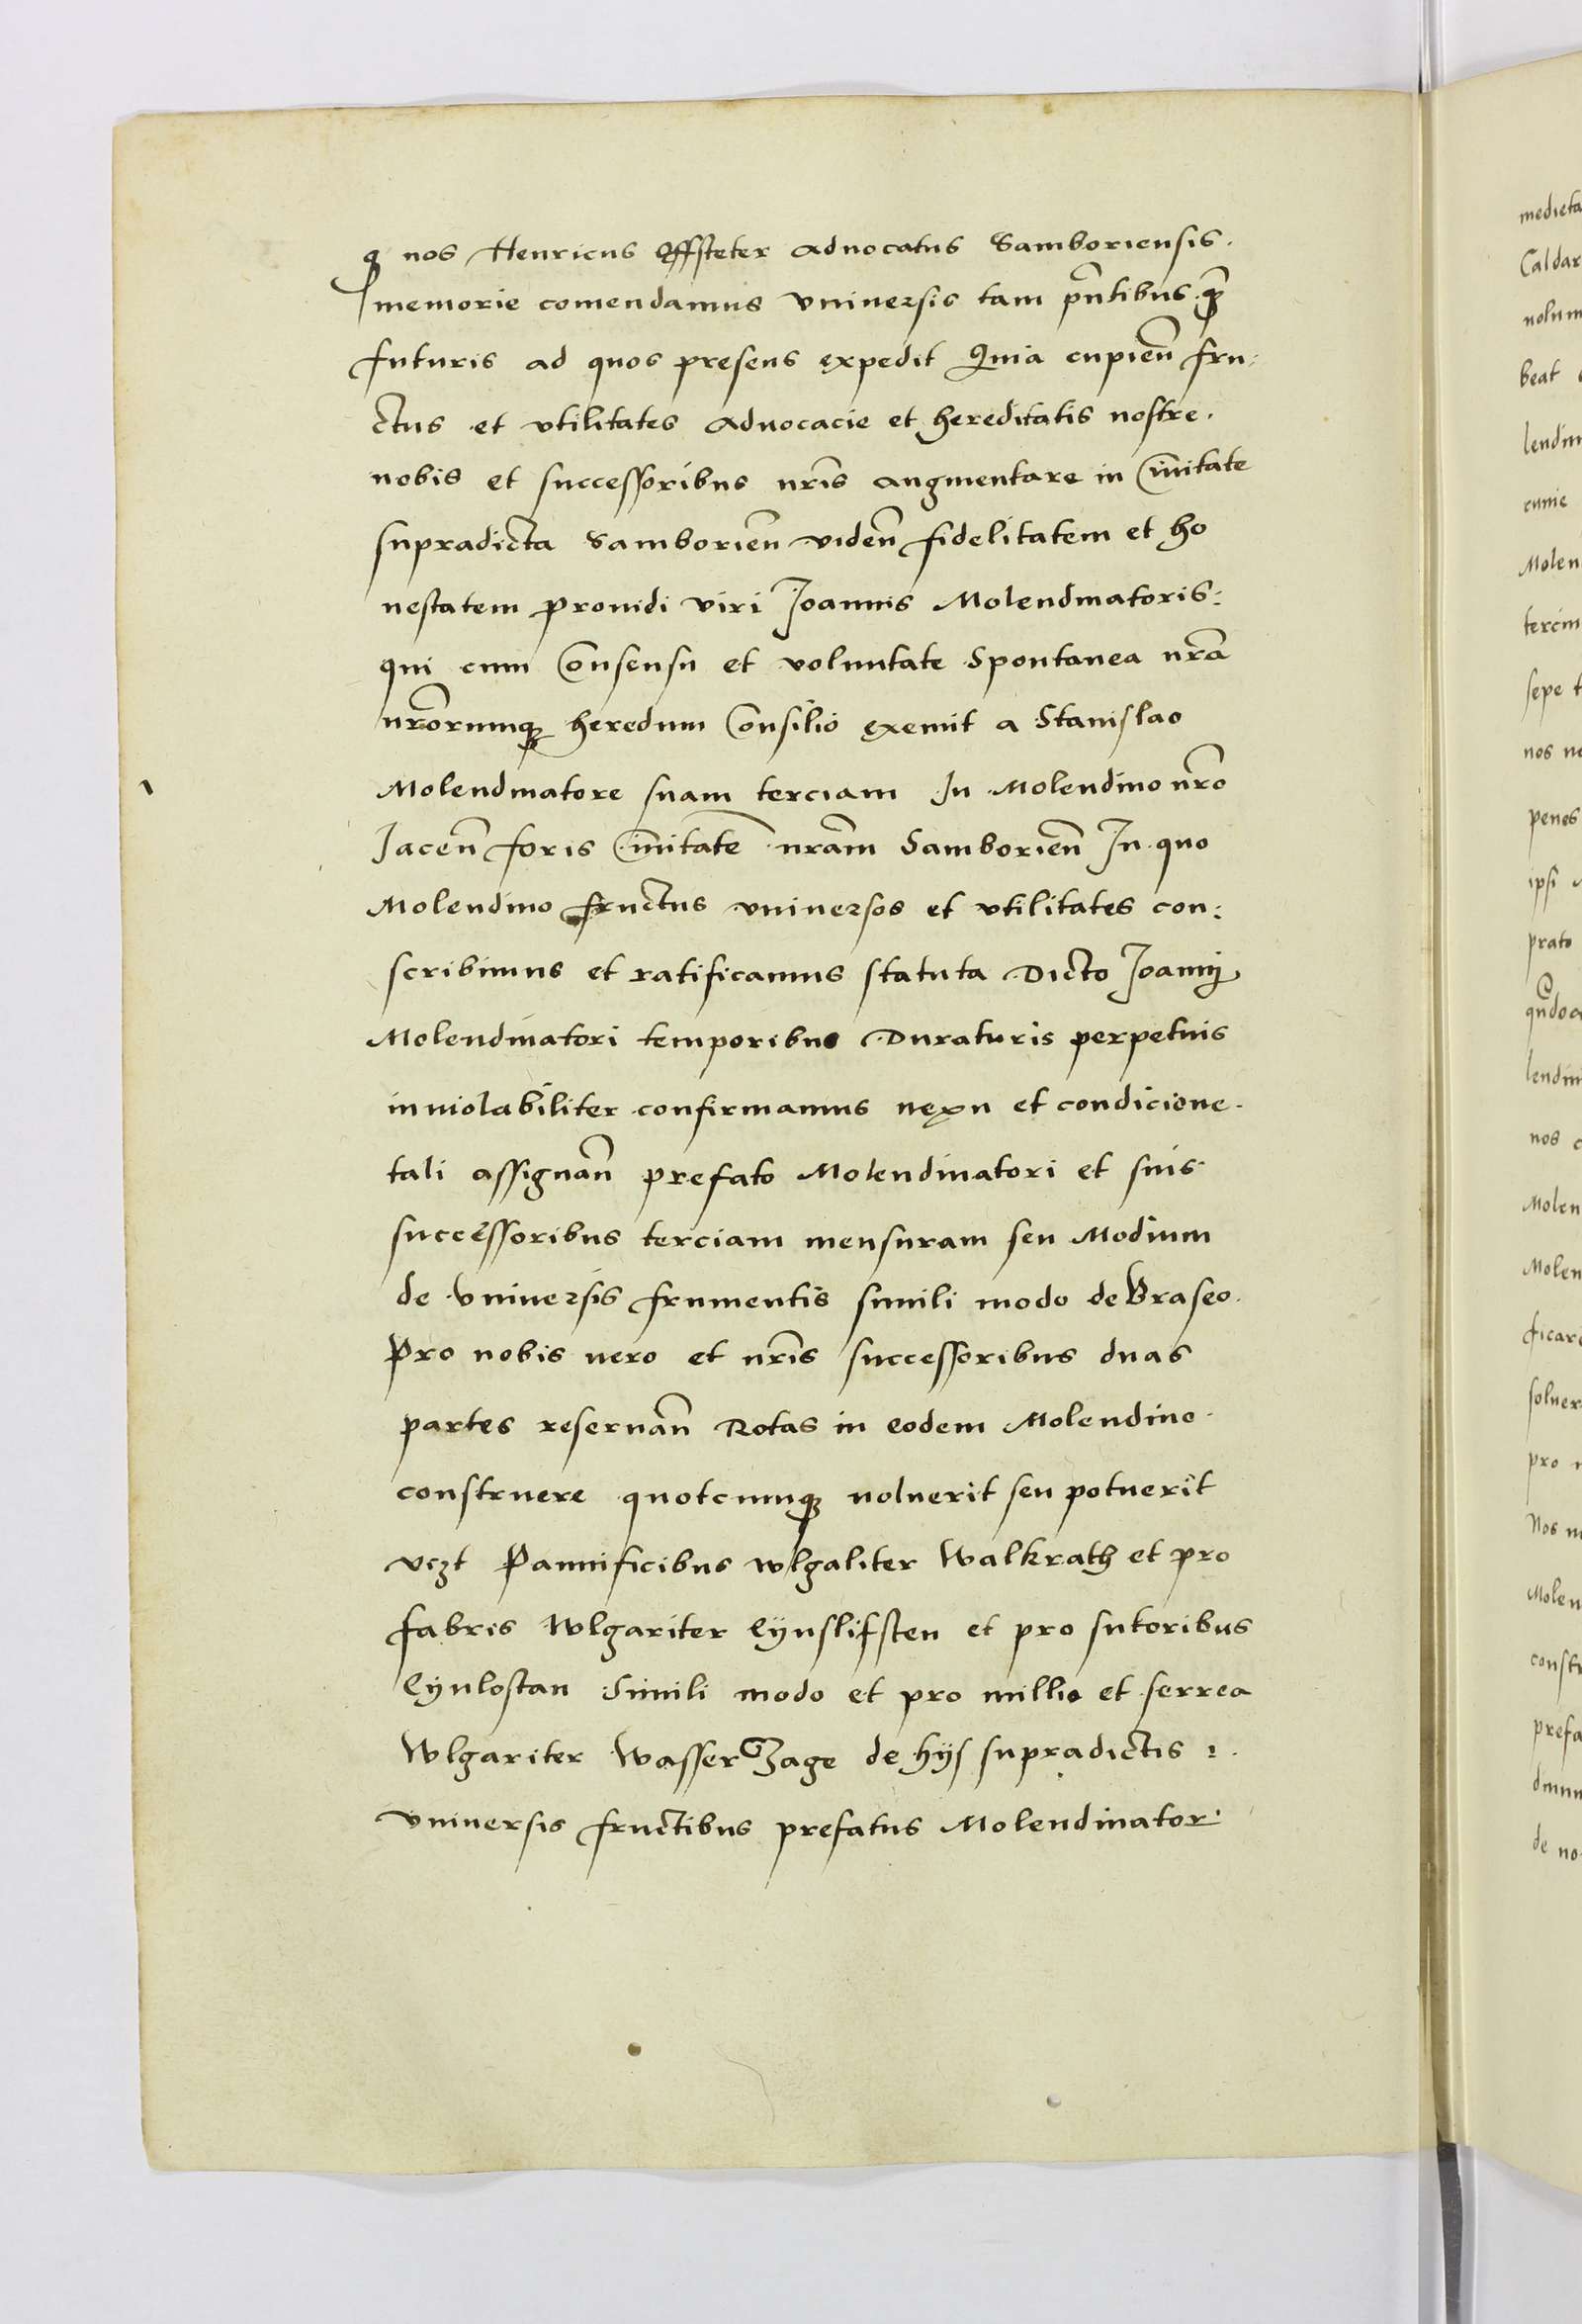 nos Henricus Offsteter advocatus Samboriensis.
memorie comendamus vniversis tam pñtibus q̃
futuris ad quos presens expedit Quia cupieñ fru:
ctus et vtilitates advocacie et hereditatis nostre.
nobis et successoribus nr̃is augmentare in Ciũitate
supradicta Samborieñ videñ fidelitatem et ho
nestatem providi viri Joannis Molendinatoris:
qui cum Consensu et voluntate Spontanea nr̃a
nr̃orumq; heredum Consilio exemit a Stanislao
Molendinatore suam terciam In Molendino nr̃o
Jaceñ foris Ciũitatẽ nr̃am Samborieñ In quo
Molendino fructus vniuersos et vtilitates con:
scribimus et ratificamus statuta Dicto Joannj
Molendinatori temporibus Duraturis perpetuis
inuiolabiliter confirmamus nexu et condicione.
tali assignañ prefato Molendinatori et suis
successoribus terciam mensuram seu Modium
de vniuersis frumentis simili modo de Braseo.
Pro nobis uero et nr̃is successoribus duas
partes reseruañ Rotas in eodem Molendino.
construere quotcumq; uoluerit seu potuerit
vczt Pannificibus wlgaliter Walkrath et pro
fabris Wlgariter Cynslifsten et pro sutoribus
Cynlostan Simili modo et pro millio et serrea
Wlgariter Wasser Zage de hijs supradictis
vniuersis fructibus prefatus Molendinator
medieta
Caldar
nolum
beat
lendin
cunie
Molen
tercim
sepe t
nos ne
penes
ipsi
prato
lendin
nos c
Molen
Molen
ficare
soluer
pro
Nos
Molen
constr
prefa
de no